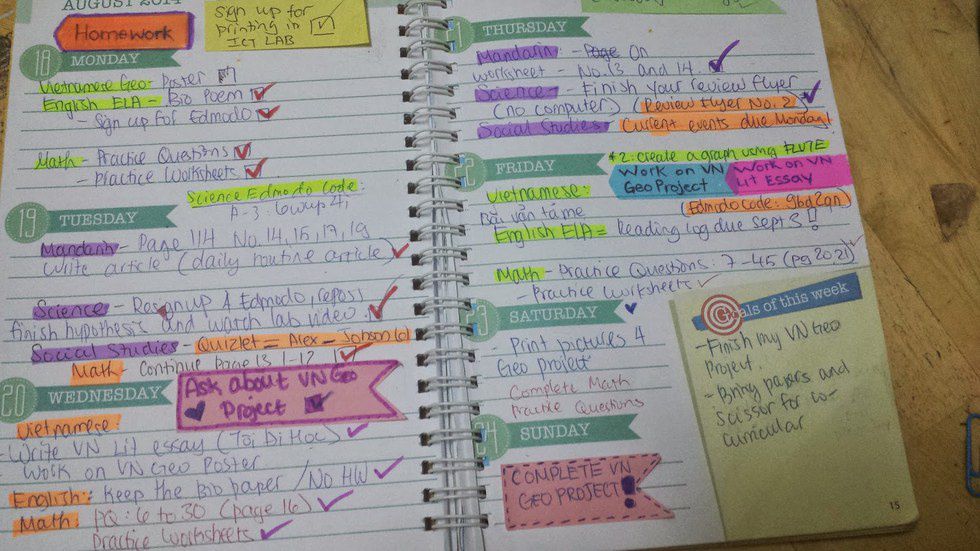 AUGUST 2014
Homework
sign up for
printing in
ICT LAB
18 MONDAY
Vietnamese Geo- Poster
English ELA - Bio Poem
- Sign up for Edmodo
Math - Practice Questions
- Practice Worksheets
Science Edmodo Code:
19 TUESDAY
Mandarin - Page 114 No. 14, 15, 17, 19
Write article (daily routine article)
Science - Edmodo, repost
finish hypothesis and watch lab video
Social Studies - Quizlet = Alex - Jobson
Math - Continue Page 13 1-12
Ask about VN Geo
Project
20 WEDNESDAY
Vietnamese:
- Write VN Lit essay (Tôi Đi Học)
Work on VN Geo Poster
English: Keep the Bio paper / No HW
Math: PQ: 6 to 30 (page 16)
Practice Worksheets
THURSDAY
Mandarin: - Page On
worksheet - No. 13 and 14.
Science - Finish your review flyer
(no computer) (Review Flyer No. 2)
Social Studies: Current events due Monday!
FRIDAY
*2. create a graph using
Work on VN
Geo Project
Work on VN
Lit Essay
Vietnamese:
Bài văn tả mẹ
(Edmodo code: 9bq2qn)
English ELA = Reading log due Sept 3!
Math - Practice Questions: 7-45 (pg 20 21)
- Practice Worksheets
SATURDAY
Print pictures 4
Geo Project
Complete Math
Practice Questions
24 SUNDAY
COMPLETE VN
GEO PROJECT!
Goals of this week
- Finish my VN Geo
Project.
- Bring papers and
scissor for co-
curricular
15